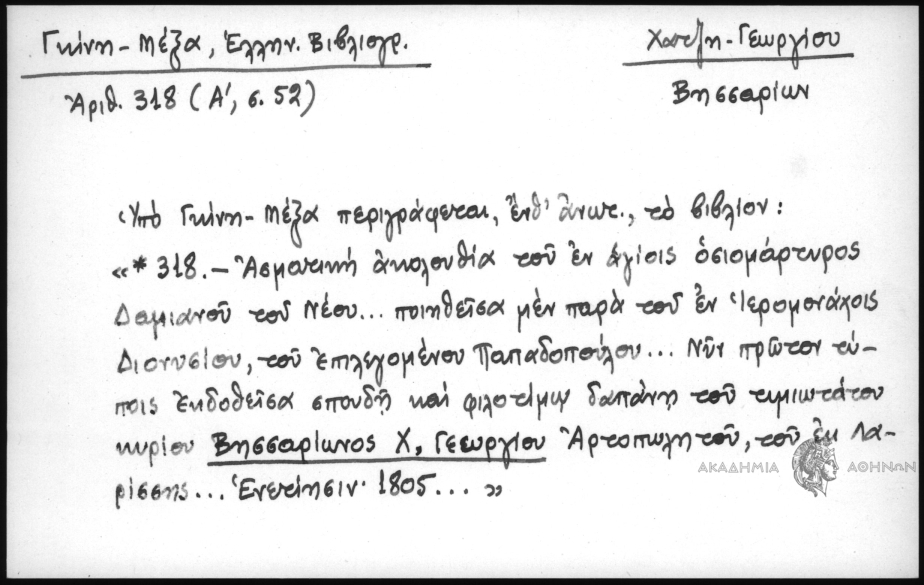 Γκίνη - Μέξα, Ἑλλην. Βιβλιογρ.
Ἀριθ. 318 (Α', σ. 52)
Χατζη-Γεωργίου
Βησσαρίων
Ὑπὸ Γκίνη - Μέξα περιγράφεται, ἔνθ' ἀνωτ., τὸ βιβλίον:
«* 318. – Ἀσματικὴ ἀκολουθία τοῦ ἐν ἁγίοις ὁσιομάρτυρος
Δαμιανοῦ τοῦ Νέου... ποιηθεῖσα μὲν παρὰ τοῦ ἐν Ἱερομονάχοις
Διονυσίου, τοῦ ἐπιλεγομένου Παπαδοπούλου... Νῦν πρῶτον τύ-
ποις ἐκδοθεῖσα σπουδῇ καὶ φιλοτίμῳ δαπάνῃ τοῦ τιμιωτάτου
κυρίου Βησσαρίωνος Χ, Γεωργίου Ἀρτοπώλη τοῦ, τοῦ ἐκ Λα-
ρίσσης... Ἐνετίησιν· 1805... »
ΑΚΑΔΗΜΙΑ ΑΘΗΝΩΝ